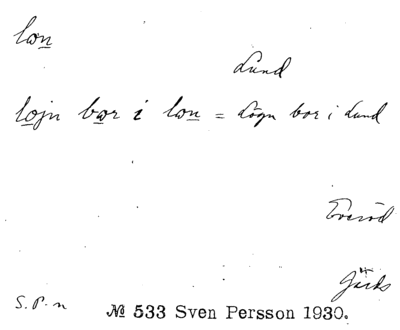 lωn
Lund
lojn bωr i lωn = Lögn bor i Lund
Everöd
Gärds
S. P-n № 533 Sven Persson 1930.